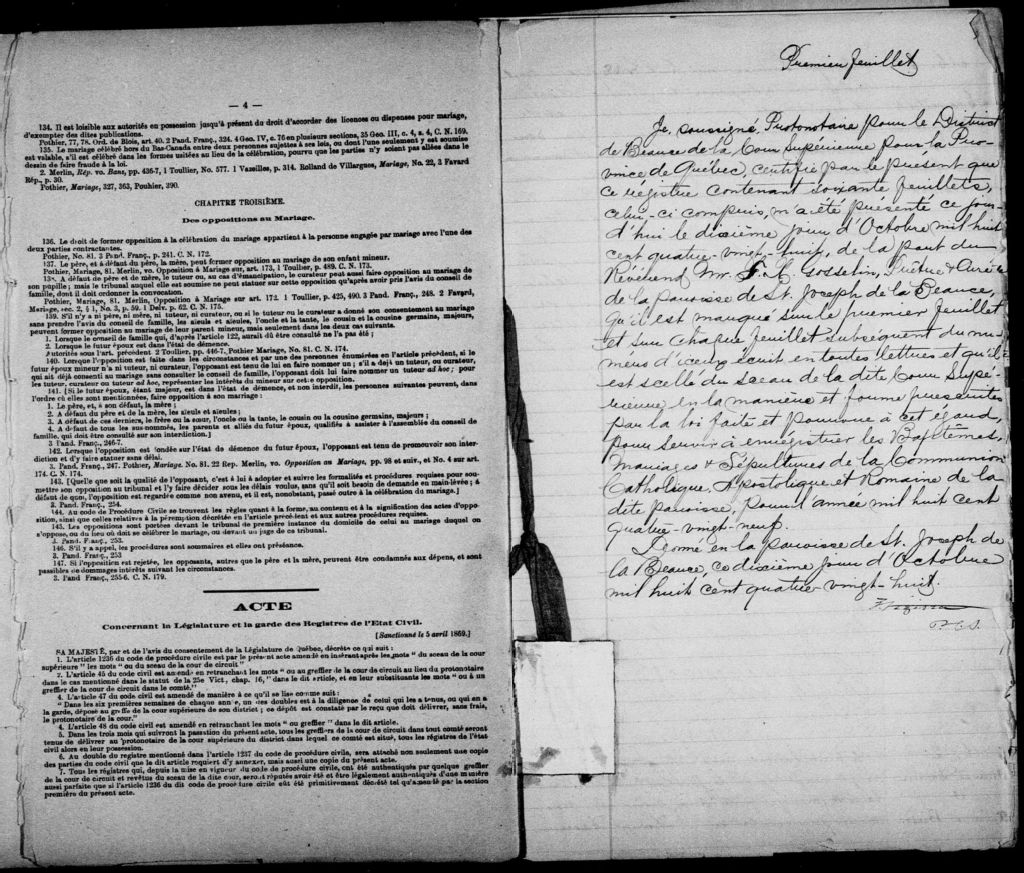 — 4 —
134. Il est loisible aux autorités en possession jusqu'à présent du droit d'accorder des licences ou dispenses pour mariage,
d'exempter des dites publications.
Pothier, 77, 78. Ord. de Blois, art. 40. 2 Pand. Franç., 324. 4 Geo. IV, c. 76 en plusieurs sections, 35 Geo. III, c. 4, s. 4, C. N. 169.
135. Le mariage célébré hors du Bas-Canada entre deux personnes sujettes à ses lois, ou dont l'une seulement y est soumise
est valable, s'il est célébré dans les formes usitées au lieu de la célébration, pourvu que les parties n'y soient pas allées dans le
dessein de faire fraude à la loi.
2. Merlin, Rép. vo. Bans, pp. 436-7, 1 Toullier, No. 577. 1 Vazeilles, p. 314. Rolland de Villargues, Mariage, No. 22, 3 Favard
Rép., p. 30.
Pothier, Mariage, 327, 363, Pouhier, 390.
CHAPITRE TROISIÈME.
Des oppositions au Mariage.
136. Le droit de former opposition à la célébration du mariage appartient à la personne engagée par mariage avec l'une des
deux parties contractantes.
Pothier, No. 81. 3 Pand. Franç., p. 241. C. N. 172.
137. Le père, et à défaut du père, la mère, peut former opposition au mariage de son enfant mineur.
Pothier, Mariage, 81. Merlin, vo. Opposition à Mariage sur, art. 173, 1 Toullier, p. 489. C. N. 173.
138. A défaut de père et de mère, le tuteur ou, au cas d'émancipation, le curateur peut aussi faire opposition au mariage de
son pupille; mais le tribunal auquel elle est soumise ne peut statuer sur cette opposition qu'après avoir pris l'avis du conseil de
famille, dont il doit ordonner la convocation.
Pothier, Mariage, 81. Merlin, Opposition à Mariage sur art. 172. 1 Toullier, p. 425, 490. 3 Pand. Franç., 248. 2 Favard,
Mariage, sec. 2, § 1, No. 3, p. 59. 1 Delv. p. 62. C. N. 175.
139. S'il n'y a ni père, ni mère, ni tuteur, ni curateur, ou si le tuteur ou le curateur a donné son consentement au mariage
sans prendre l'avis du conseil de famille, les aïeuls et aïeules, l'oncle et la tante, le cousin et la cousine germains, majeurs,
peuvent former opposition au mariage de leur parent mineur, mais seulement dans les deux cas suivants.
1. Lorsque le conseil de famille qui, d'après l'article 122, aurait dû être consulté ne l'a pas été;
2. Lorsque le futur époux est dans l'état de démence.
Autorités sous l'art. précédent 2 Toullier, pp. 446-7, Pothier Mariage, No. 81. C. N. 174.
140. Lorsque l'opposition est faite dans les circonstances et par une des personnes énumérées en l'article précédent, si le
futur époux mineur n'a ni tuteur, ni curateur, l'opposant est tenu de lui en faire nommer un; s'il a déjà un tuteur, ou curateur,
qui ait déjà consenti au mariage sans consulter le conseil de famille, l'opposant doit lui faire nommer un tuteur ad hoc; pour
les tuteur, curateur ou tuteur ad hoc, représenter les intérêts du mineur sur cette opposition.
141. [Si le futur époux, étant majeur, est dans l'état de démence, et non interdit, les personnes suivantes peuvent, dans
l'ordre où elles sont mentionnées, faire opposition à son mariage:
1. Le père, et, à son défaut, la mère;
2. A défaut du père et de la mère, les aïeuls et aïeules;
3. A défaut de ces derniers, le frère ou la sœur, l'oncle ou la tante, le cousin ou la cousine germains, majeurs;
4. A défaut de tous les sus-nommés, les parents et alliés du futur époux, qualifiés à assister à l'assemblée du conseil de
famille, qui doit être consulté sur son interdiction.]
3 Pand. Franç., 246-7.
142. Lorsque l'opposition est fondée sur l'état de démence du futur époux, l'opposant est tenu de promouvoir son inter-
diction et d'y faire statuer sans délai.
3. Pand. Franç., 247. Pothier, Mariage. No. 81. 22 Rep. Merlin, vo. Opposition au Mariage, pp. 98 et suiv., et No. 4 sur art.
174. C. N. 174.
143. [Quelle que soit la qualité de l'opposant, c'est à lui à adopter et suivre les formalités et procédures requises pour sou-
mettre son opposition au tribunal et l'y faire décider sous les délais voulus, sans qu'il soit besoin de demande en main-levée; à
défaut de quoi, l'opposition est regardée comme non avenu, et il est, nonobstant, passé outre à la célébration du mariage.]
3. Pand. Franç., 254.
144. Au code de Procédure Civile se trouvent les règles quant à la forme, au contenu et à la signification des actes d'oppo-
sition, ainsi que celles relatives à la péremption décrétée en l'article précédent et aux autres procédures requises.
145. Les oppositions sont portées devant le tribunal de première instance du domicile de celui au mariage duquel on
s'oppose, ou du lieu où doit se célébrer le mariage, ou devant un juge de ce tribunal.
3. Pand. Franç., 263.
146. S'il y a appel, les procédures sont sommaires et elles ont préséance.
3. Pand. Franç., 253
147. Si l'opposition est rejetée, les opposants, autres que le père et la mère, peuvent être condamnés aux dépens, et sont
passibles de dommages intérêts suivant les circonstances.
3. Pand. Franç., 255-6. C. N. 179.
ACTE
Concernant la Législature et la garde des Registres de l'Etat Civil.
[Sanctionné le 5 avril 1869.]
SA MAJESTÉ, par et de l'avis du consentement de la Législature de Québec, décrète ce qui suit:
1. L'article 1236 du code de procédure civile est par le présent acte amendé en insérant après les mots "du sceau de la cour
supérieure" les mots "ou du sceau de la cour de circuit"
7. L'article 45 du code civil est amendé en retranchant les mots "ou au greffier de la cour de circuit au lieu du protonotaire
dans le cas mentionné dans le statut de la 25e Vict., chap. 16," dans le dit article, et en leur substituants les mots "ou à un
greffier de la cour de circuit dans le comté."
4. L'article 47 du code civil est amendé de manière à ce qu'il se lise comme suit:
"Dans les six premières semaines de chaque année, un des doubles est à la diligence de celui qui les a tenus, ou qui en a
la garde, déposé au greffe de la cour supérieure de son district; ce dépôt est constaté par le reçu que doit délivrer, sans frais,
le protonotaire de la cour."
4. L'article 48 du code civil est amendé en retranchant les mots "ou greffier" dans le dit article.
5. Dans les trois mois qui suivront la passation du présent acte, tous les greffiers de la cour de circuit dans tout comté seront
tenus de délivrer au protonotaire de la cour supérieure du district dans lequel ce comté est situé, tous les régistres de l'état
civil alors en leur possession.
6. Au double du registre mentionné dans l'article 1237 du code de procédure civile, sera attaché non seulement une copie
des parties du code civil que le dit article requiert d'y annexer, mais aussi une copie du présent acte.
7. Tous les régistres qui, depuis la mise en vigueur du code de procédure civile, ont été authentiqués par quelque greffier
de la cour de circuit et revêtus du sceau de la dite cour, seront réputés avoir été et être légalement authentiqués d'une manière
aussi parfaite que si l'article 1236 du dit code de procédure civile eût été primitivement décrété tel qu'amendé par la section
première du présent acte.
Premier feuillet
Je, soussigné, Protonotaire pour le District
de Beauce de la Cour Supérieure pour la Pro-
vince de Québec, certifie par le présent que
ce régistre contenant soixante feuillets,
celui-ci compris, m'a été présenté ce jour-
d'hui le dixième jour d'Octobre mil huit
cent quatre-vingt-huit, de la part du
Révérend Mr. Gosselin, Prêtre & Curé
de la paroisse de St. Joseph de la Beauce,
Qu'il est marqué sur le premier feuillet
et sur chaque feuillet subséquent du nu-
méro d'iceux écrit en toutes lettres et qu'il
est scellé du sceau de la dite Cour Supé-
rieure en la manière et forme prescrites
par la loi faite et pourvue à cet égard,
pour servir à enregistrer les Baptêmes,
Mariages & Sépultures de la Communion
Catholique, Apostolique et Romaine de la
dite Paroisse, pour l'année mil huit cent
quatre-vingt-neuf.
Donné en la paroisse de St. Joseph de
la Beauce, ce dixième jour d'Octobre
mil huit cent quatre vingt-huit.
P.C.S.